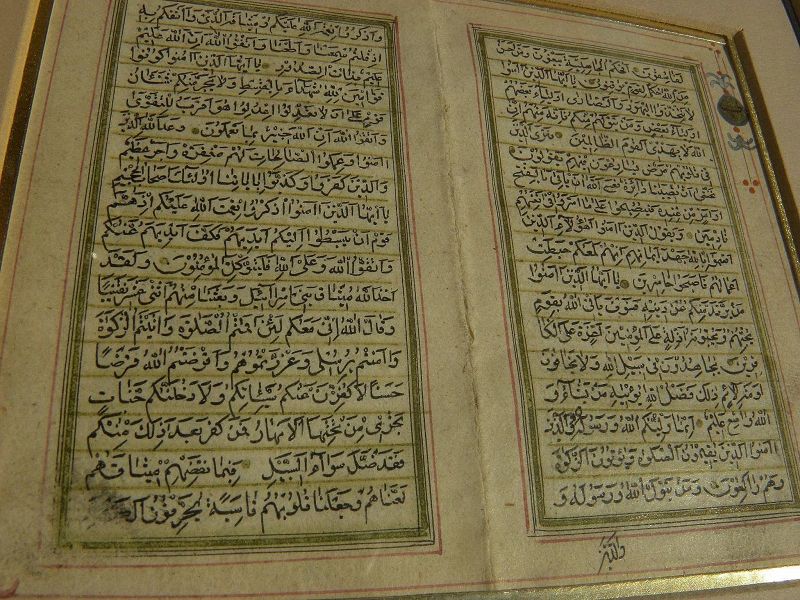 لفاسقون افحكم الجاهلية يبغون ومن احسن
من الله حكما لقوم يوقنون يا ايها الذين آمنوا
لا تتخذوا اليهود والنصارى اولياء بعضهم
اولياء بعض ومن يتولهم منكم فانه منهم ان
الله لا يهدى القوم الظالمين فترى الذين
فى قلوبهم مرض يسارعون فيهم يقولون
نخشى ان تصيبنا دائرة فعسى الله ان ياتى بالفتح
او امر من عنده فيصبحوا على ما اسروا فى انفسهم
نادمين ويقول الذين آمنوا اهؤلاء الذين
اقسموا بالله جهد ايمانهم انهم لمعكم حبطت
اعمالهم فاصبحوا خاسرين يا ايها الذين آمنوا
من يرتد منكم عن دينه فسوف ياتى الله بقوم
يحبهم ويحبونه اذلة على المؤمنين اعزة على الكا
فرين يجاهدون فى سبيل الله ولا يخافون
لومة لائم ذلك فضل الله يؤتيه من يشاء و
الله واسع عليم انما وليكم الله ورسوله والذين
آمنوا الذين يقيمون الصلوة ويؤتون الزكوة
وهم راكعون ومن يتول الله ورسوله و
والذين
واذكروا نعمة الله عليكم وميثاقه الذى واثقكم به
اذ قلتم سمعنا واطعنا واتقوا الله ان الله
عليم بذات الصدور يا ايها الذين آمنوا كونوا
قوامين لله شهداء بالقسط ولا يجرمنكم شنئان
قوم على ان لا تعدلوا اعدلوا هو اقرب للتقوى
واتقوا الله ان الله خبير بما تعملون وعد الله الذين
آمنوا وعملوا الصالحات لهم مغفرة واجر عظيم
والذين كفروا وكذبوا باياتنا اولئك اصحاب الجحيم
يا ايها الذين آمنوا اذكروا نعمت الله عليكم اذ هم
قوم ان يبسطوا اليكم ايديهم فكف ايديهم عنكم
واتقوا الله وعلى الله فليتوكل المؤمنون ولقد
اخذ الله ميثاق بنى اسرائيل وبعثنا منهم اثنى عشر نقيبا
وقال الله انى معكم لئن اقمتم الصلوة واتيتم الزكوة
وآمنتم برسلى وعزرتموهم واقرضتم الله قرضا
حسنا لاكفرن عنكم سيئاتكم ولادخلنكم جنات
تجرى من تحتها الانهار فمن كفر بعد ذلك منكم
فقد ضل سواء السبيل فبما نقضهم ميثاقهم
لعناهم وجعلنا قلوبهم قاسية يحرفون الكلم